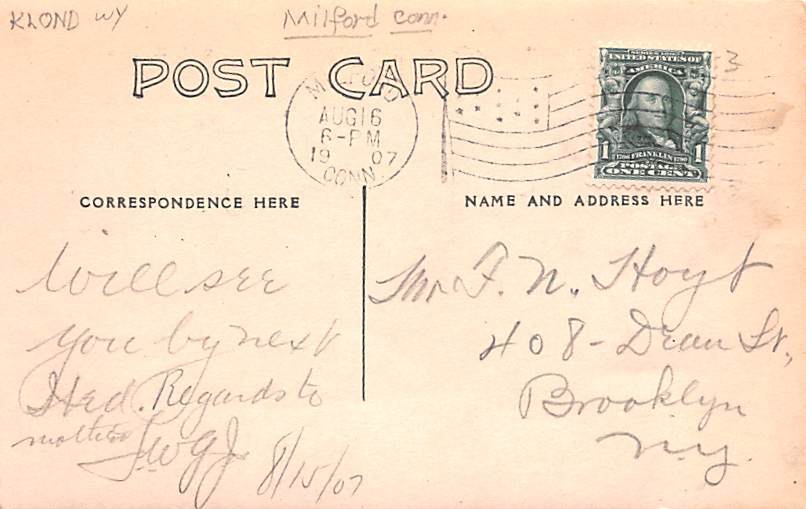 KLOND WY
Milford Conn.
3
POST CARD
MILFORD
AUG 16
6-PM
1907
CONN.
SERIES 1902
UNITED STATES OF
AMERICA
1 1706 FRANKLIN 1790 1
POSTAGE
ONE CENT
CORRESPONDENCE HERE
NAME AND ADDRESS HERE
Will see
you by next
Wed. Regards to
mother
8/15/07
Mr. F. N. Hoyt
408 - Dean St.,
Brooklyn
N.Y.